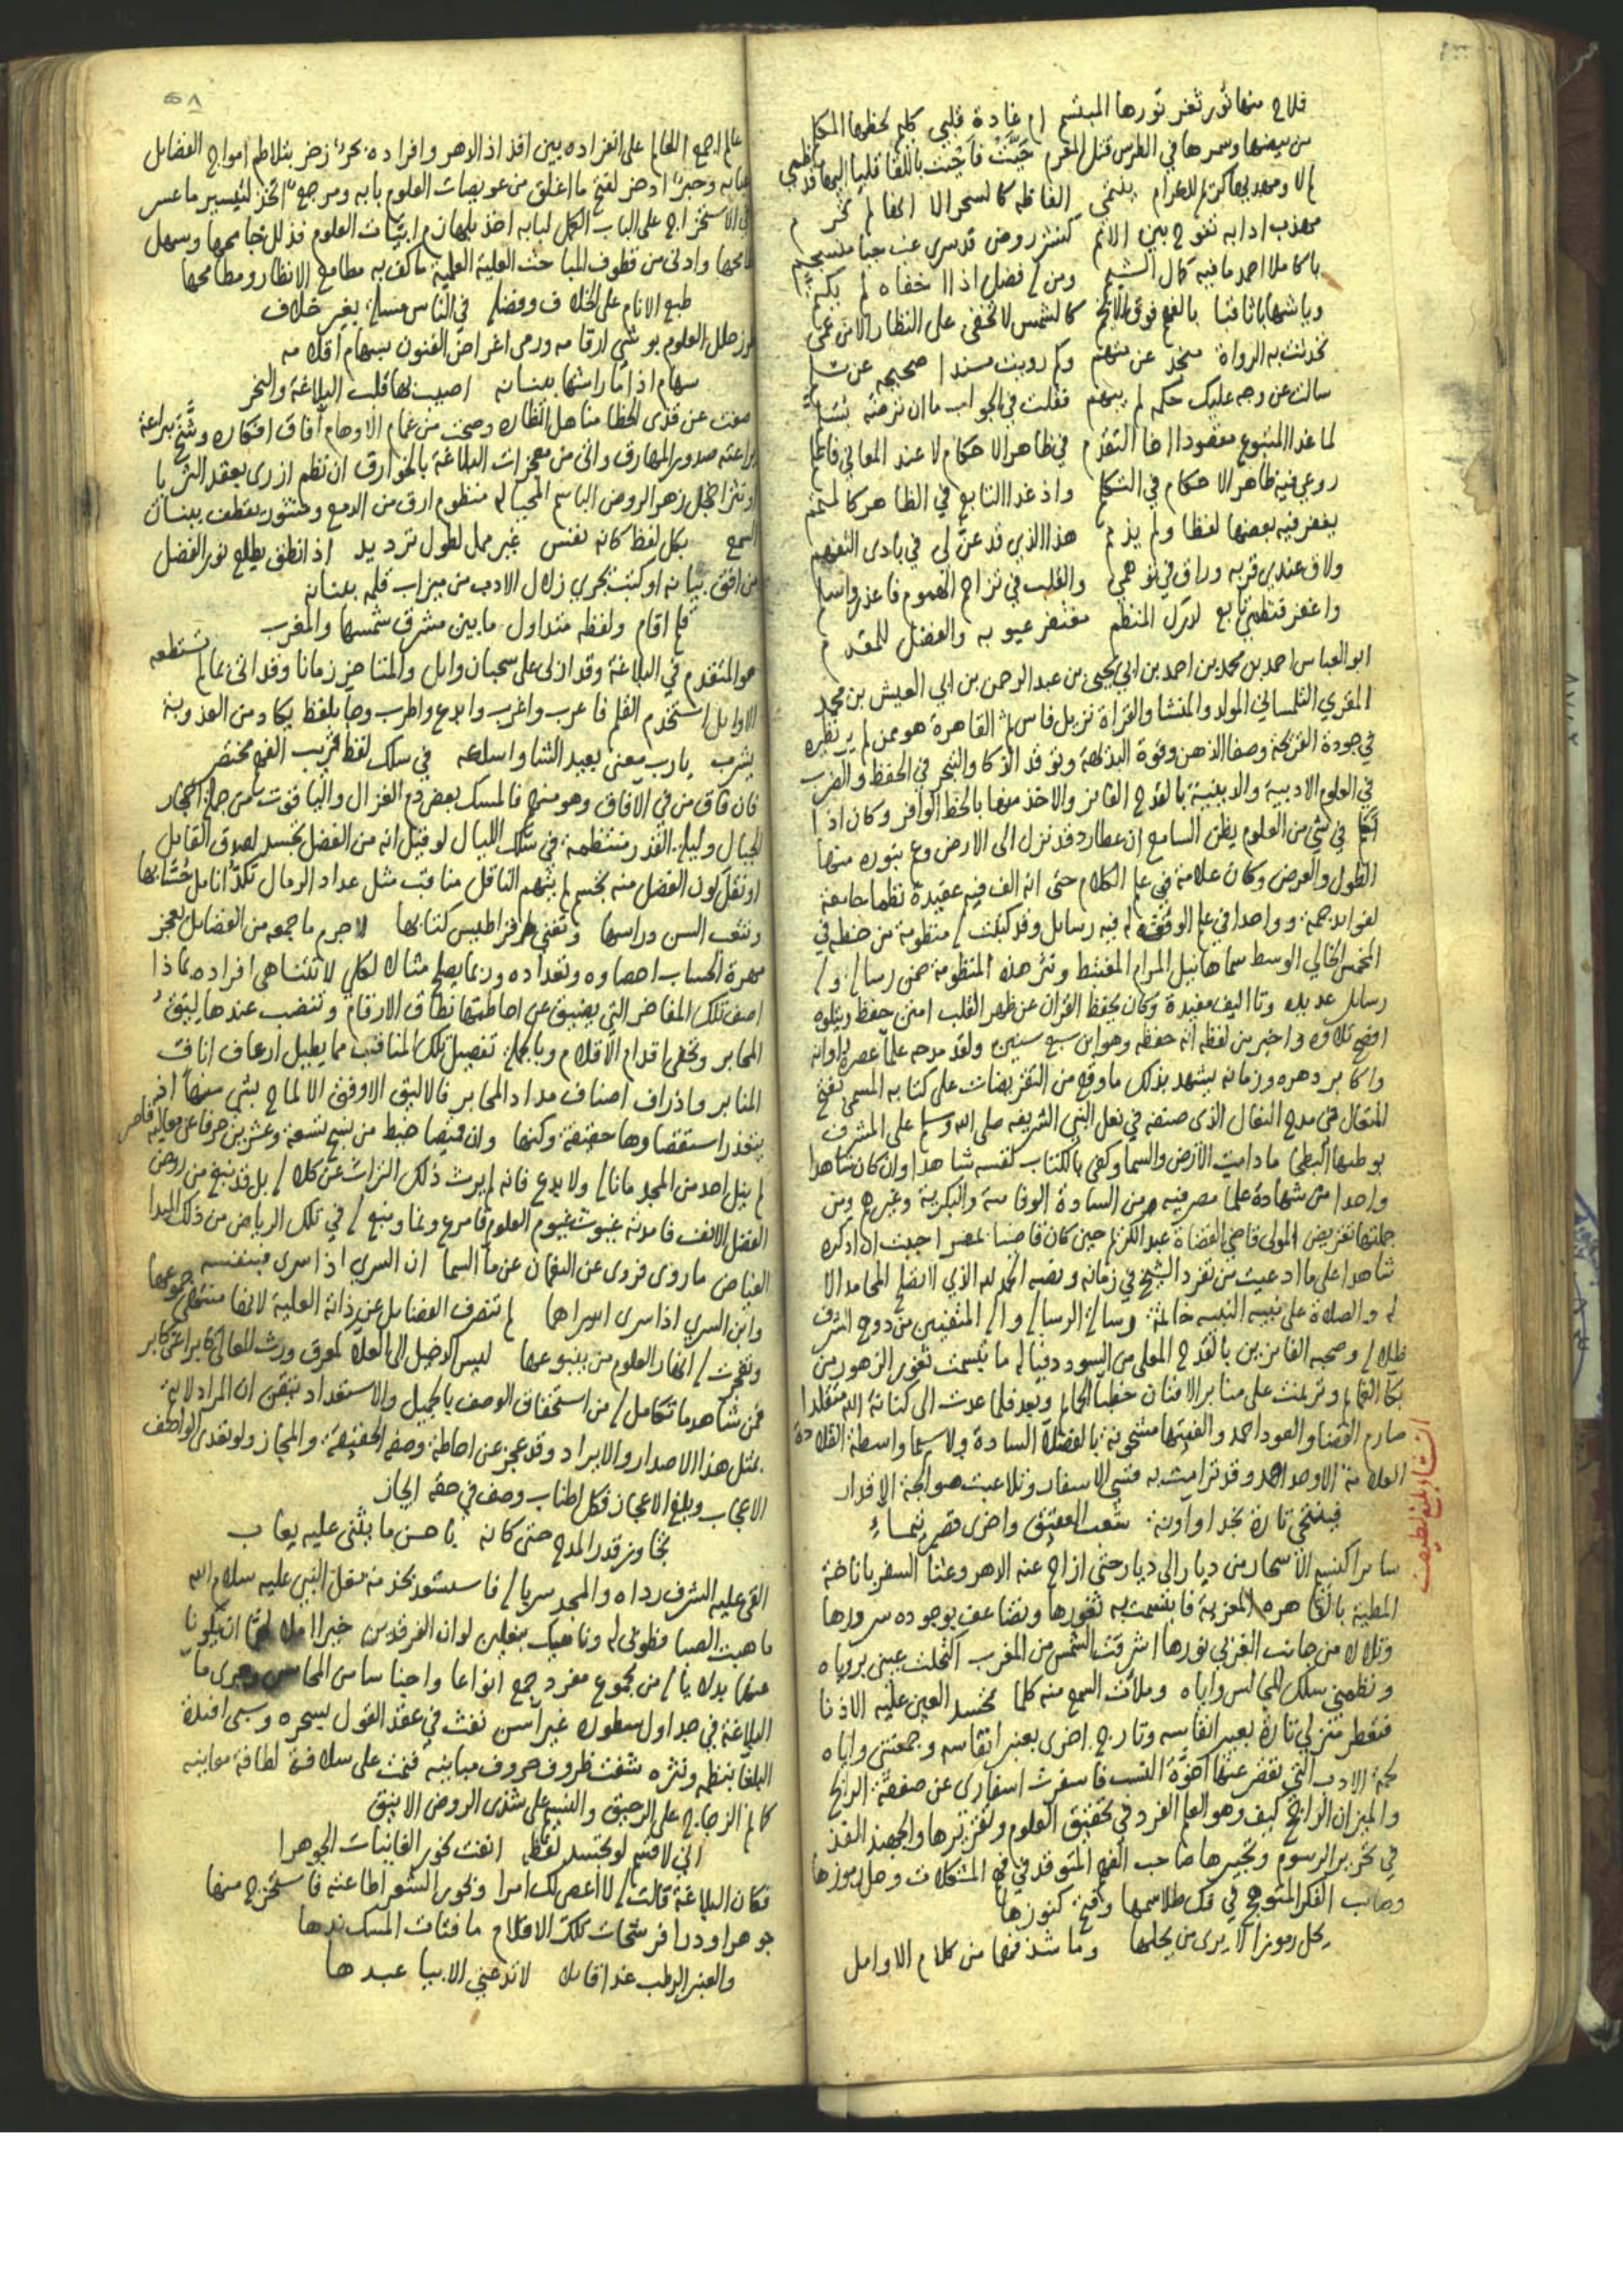 فلاح منها نور ثغر نورها المبتسم ام غادة قلبي كلم لحظها المكلم
من بيضها وسمرها في الطرس قتل المغرم حيت فاحيت باللقا قلبا اليها قد ظمي
الفاظه كالسحر الا انها لم تحرم
مهذب ادابه تفوح بين الامم كنشر روض قدسري غب حيا منسجم
يا كاملا احمد ما فيه كمال الشيم ومن له فضل اذا اخفاه لم يكتم
ويا شهابا ثاقبا بالفهم فوق الانجم كالشمس لا تخفى على النظار الا من عمي
تحدثت به الرواة منجد عن متهم وكم رويت مسندا صحيحه عن مسلم
سالت عن وجه عليك حكمه لم يبهم فقلت في الجواب ما ان نزعته بتسلم
لما غدا المتبوع مفقودا اخا التقدم في ظاهر الاحكام لا عند المعاني فاعلم
روعي فيه ظاهر الاحكام في التكلم واذ غدا التابع في الظاهر كالمتمم
يغفر فيه بعضها لفظا ولم يذمم هذا الذي قد عن لي في بادى التفهم
ولاق عندي قربه وراق في توهمي والقلب في تزاحم الهموم فاعذر واسلم
واغفر فنظمي تابع لدرك المنظم مغتفر عيوبه والفضل للمقدم
ابو العباس احمد بن محمد بن احمد بن ابي يحيى بن عبد الرحمن بن ابي العيش بن محمد
المقري التلمساني المولد والمنشا والقراة نزيل فاس ثم القاهرة هو ممن لم ير نظيره
في جودة القريحة وصفا الذهن وقوة البديهة وتوقد الذكا والتبحر في الحفظ والضرب
في العلوم الادبية والدينية بالقدح الفائز والاخذ منها بالحظ الوافر وكان اذا
تكلم في شي من العلوم يظن السامع ان عطارد قد نزل الى الارض وعم بنوره منها
الطول والعرض وكان علامة في علم الكلام حتى انه الف فيه عقيدة نظما جامعة
لفوايد جمة وواحدا في علم الوفق وله فيه رسايل وقد كتبت له منظومة من خطه في
المخمس الخالي الوسط سماها نيل المرام المغتبط ونثر هذه المنظومة ضمن رسالة وله
رسايل عديدة وتاليف مفيدة وكان يحفظ القران عن ظهر القلب امتن حفظ ويتلوه
افصح تلاوة واخبر من لفظه انه حفظه وهو ابن سبع سنين ولقد مدحه علما عصره واوانه
واكابر دهره وزمانه يشهد بذلك ما وقع من التقريضات على كتابه المسمى بفتح
المتعال في مدح النعال الذى صنفه في نعل النبي الشريفه صلى الله وسلم على المشرف
بوطيها البطحا ما دامت الارض والسما وكفى بالكتاب نفسه شاهدا وان كان شاهدا
واحدا من شهادة علما مصر فيه من السادة الوفائية والبكرية وغيرهم ومن
جملتها تقريض المولى قاضي القضاة عبد الكريم حين كان قاضيا بمصر احببت ان اذكره
شاهدا على ما ادعيت من تفرد الشيخ في زمانه ونصه الحمد لله الذي لا تصلح المحامد الا
له والصلاة على نبيه النبيه خاتمة رسالة الرسالة واله المتفيين من دوح الشرف
ظلاله وصحبه الفائزين بالقدح المعلى من السودد وفياله ما تبسمت ثغور الزهور من
بكا الغمام وترنمت على منابر الافنان خطبا الحمام وبعد فلما عدت الى كنانة الله متقلدا
صارم القضا والعود احمد والفيتها مشحونة بالفضلا السادة ولا سيما واسطة القلادة
العلامة الاوحد احمد وقد ترامت به قسي الاسفار وتلاعبت صوالجة الاقدار
فينتحي تارة نجدا واونة شعب العقيق واخرى قصر تيماء
سايرا كنسيم الاسحار من ديار الى ديار حتى ازاح عنه الدهر وعثا السفر باناخة
المطية بالقاهرة المعزية فابتسمت به ثغورها وتضاعف بوجوده سرورها
وتلالا من جانب الغربي نورها اشرقت الشمس من المغرب اكتحلت عيني بروياه
ونظمني سلك المجالس واياه وملات السمع منه كلما تحسد العين عليه الاذنا
فتعطر منزلي تارة بعبير انفاسه وتارج اخرى بعنبر انقاسه وجمعتني واياه
لحمة الادب التي تقصر عنها اخوة النسب فاسفرت اسفارى عن صفقة الرابح
والميزان الراجح كيف وهو العلم الفرد في تحقيق العلوم وتقريرها والجهبذ الفذ
في تحرير الرسوم وتحبيرها صاحب الفهم المتوقد في فهم المشكلات وحل رموزها
وصاحب الفكر المتوهج في فك طلاسمها وفتح كنوزها
يحل رموزا لا يرى من يحلها وما شذ فهما من كلام الاوايل
انشا بليغ لطيف
٥٨
عالم اجمع العالم على انفراده بين افذاذ الدهر وافراده بحر زخر بتلاطم امواج الفضايل
عبابه وحبر ادخر لفتح ما اغلق من عويصات العلوم بابه ومرجع اتخذ لتيسير ما عسر
في الاستخراج على الباب الكمل لبابه اخذ بلهازم ابيات العلوم فذلل جامحها وسهل
طامحها وادنى من قطوف المباحث العلية العلمية ما كف به مطامع الانظار ومطامحها
طبع الانام على الخلاف وفضله في الناس مسلة بغير خلاف
طرز حلل العلوم بوشي ارقامه ورمى اغراض الفنون بسهام اقلامه
سهام اذا ما راشها ببنانه اصيب بها قلب البلاغة والنحر
صفت عن قذى الخطا مناهل انظاره وصحت من غمام الاوهام آفاق افكاره وشح ببراعة
يراعته صدور المهارق واتى من معجزات البلاغة بالخوارق ان نظم ازرى بعقد الثريا
او نثر اخجل زهر الروض الباسم المحيا له منظوم ارق من الدمع ومنثور يقطف ببنان
السمع بكل لفظ كانه نفس غير ممل لطول ترديد اذ انطق يطلع نور الفضل
من افق بيانه او كتب يجري زلال الادب من ميزاب قلمه ببنانه
قلم اقام ولفظه متداول ما بين مشرق شمسها والمغرب
هو المتقدم في البلاغة وقد ازرى على سحبان وايل والمتاخر زمانا وقد اتى بما لم تستطعه
الاوايل استخدم القلم فاعرب واغرب وابدع واطرب وجا بلفظ يكاد من العذوبة
يشرب يا رب معنى بعيد الشاو اسلكه في سلك لفظ قريب الفهم مختصر
فان فاق من في الافاق وهو منهم فالمسك بعض دم الغزال والياقوت من جملة احجار
الجبال وليلة القدر منتظمة في سلك الليال لو قيل انه من الفضل تجسد لصدق القايل
او نقل كون الفضل منه تجسم لم يتهم الناقل مناقب مثل عداد الرمال تكل انامل حسابها
وتتعب السن دراسها وتفني قراطيس كتابها لا جرم ما جمعه من الفضايل يعجز
مهرة الحساب احصاوه وتعداده وربما يصلح مثالا لكلي لا تتناهى افراده بماذا
اصف تلك المفاخر التي يضيق عن احاطتها نطاق الارقام وتنضب عندها ليقة
المحابر وتحفى اقدام الاقلام وبالجملة تفصيل تلك المناقب مما يطيل ارعاف انف
المنابر واذراف اصناف مداد المحابر فالاليق الاوفق الالماح بشي منها اذ
يتعذر استقصاوها حقيقة وكنها وان قميصا خيط من نسج تسعة وعشرين حرفا عن معاليه قاصر
لم ينل احد من المجد ماناله ولا بدع فانه لم يرث ذلك التراث عن كلاله بل قد نبع من روض
الفضل الانف فامدته غيوث غيوم العلوم فامرع ونما ونبع له في تلك الرياض من ذلك المبدا
الفياض ما روى فروى عن النعمان عن ما السما ان السري اذا سرى فبنفسه
وابن السري اذا سرى اسراهما لم تنصرف الفضايل عن ذاته العلية لانها منتهى جموعها
وتفجرت له انهار العلوم من ينبوعها ليس الدخيل الى العلا كمعرق ورث المعالي كابرا عن كابر
فمن شاهد ما تكامل له من استحقاق الوصف بالجميل والاستعداد تيقن ان المراد لا يتم
بمثل هذا الاصدار والايراد وقد عجز عن احاطة وصفه الحقيقة والمجاز ولو تعدى الواصف
الاعجاب وبلغ الاعجاز فكل اطناب وصف في حقه ايجاز
تجاوز قدر المدح حتى كانه باحسن ما يثنى عليه يعاب
القى عليه الشرف رداه والمجد سرباله فاستسعد بخدمة نعل النبي عليه سلام الله
ما هبت الصبا فطوبى له وناهيك بنعلين لوان الفرقدين خيرا املا ان يكونا
عنهما بدلا ياله من مجموع مفرد جمع انواعا واجناسا من المحاسن وجرى ما
البلاغة في جداول سطوره غير آسن نفث في عقد القول بسحره وسبى افئدة
البلغا بنظمه ونثره شفت ظروف حروف مبانيه فنمت على سلافة لطافة معانيه
كما نم الزجاج على الرحيق والنسيم على شذى الروض الانيق
اني لاقسم لو تجسد لفظه انفت نحور الغانيات الجوهرا
فكان البلاغة قالت له لا اعصي لك امرا وبحور الشعر اطاعته فاستخرج منها
جوهرا ودرا فرشحات تلك الاقلام ما فتات المسك ندها
والعنبر الرطب غدا قايلا لا تدعني الا بيا عبدها